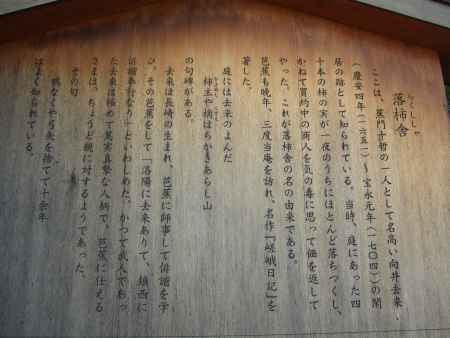 落柿舎
らくししゃ
ここは、蕉門十哲の一人として名高い向井去来
(慶安四年(一六五一)~宝永元年(一七〇四))の閑
居の跡として知られている。当時、庭にあった四
十本の柿の実が一夜のうちにほとんど落ちつくし、
かねて買約中の商人を気の毒に思って価を返して
やった。これが落柿舎の名の由来である。
芭蕉も晩年、三度当庵を訪れ、名作「嵯峨日記」を
著した。
庭には去来のよんだ
柿主や梢はちかきあらし山
の句碑がある。
去来は長崎の生まれ、芭蕉に師事して俳諧を学
び、その芭蕉をして「洛陽に去来ありて、鎮西に
俳諧奉行なり」といわしめた。かつて武人であっ
た去来は極めて篤実真摯な人柄で、芭蕉に仕える
さまは、ちょうど親に対するようであった。
その句
鴨なくや弓矢を捨てて十余年
はよく知られている。